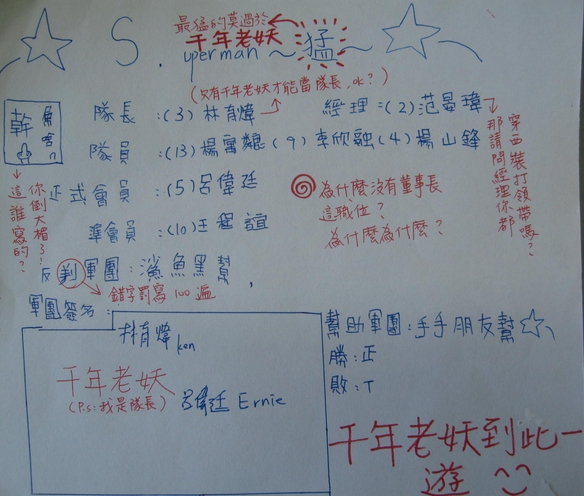 最猛的莫過於
千年老妖
S.uperman～猛～
(只有千年老妖才能當隊長，ok？)
幹
隊長：(3)林育煒
經理：(2)范晏瑋
隊員：(13)楊寓驄(9)李欣融(4)楊山鋒
正式會員：(5)呂偉廷
準會員：(10)王程誼
反判軍團：鯊魚黑幫，
錯字罰寫100遍
你倒大楣了！
這誰寫的？
為什麼沒有董事長
這職位？
為什麼為什麼？
那請問經理你都
穿西裝打領帶嗎？
軍團簽名：
林育煒
ken
千年老妖
(P.s:我是隊長)
呂偉廷 Ernie
幫助軍團：手手朋友幫
勝：正
敗：T
千年老妖到此一
遊 ^^